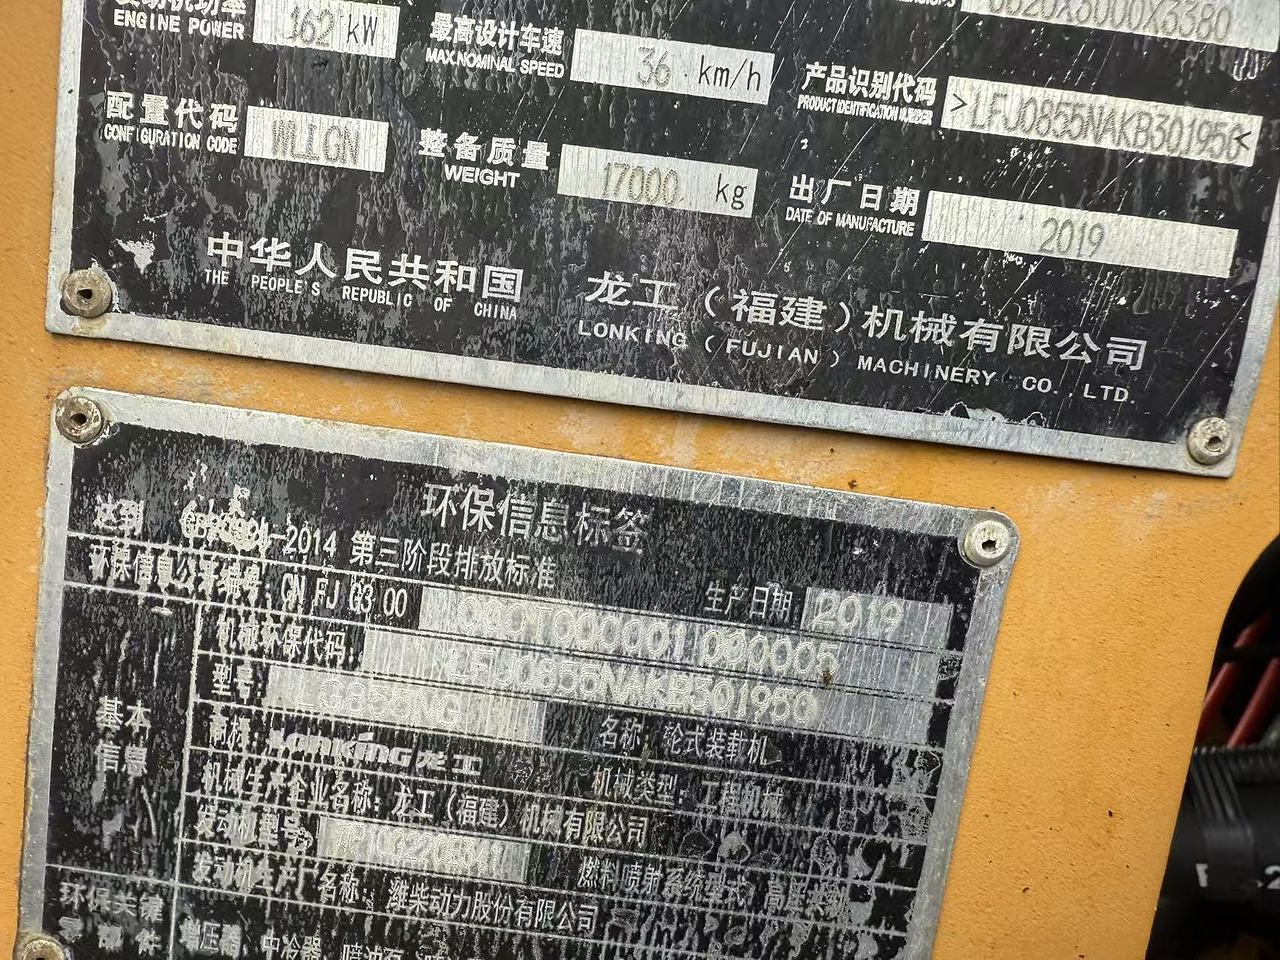 ENGINE POWER 162 kW
最高设计车速 36 km/h
MAX.NOMINAL SPEED
产品识别代码
PRODUCT IDENTIFICATION NUMBER
配置代码
CONFIGURATION CODE
整备质量 17000 kg
WEIGHT
出厂日期 2019
DATE OF MANUFACTURE
中华人民共和国
THE PEOPLE'S REPUBLIC OF CHINA
龙工（福建）机械有限公司
LONKING (FUJIAN) MACHINERY CO., LTD.
环保信息标签
达到 -2014 第三阶段排放标准
生产日期 2019
环保信息公开编号: CN FJ G3 00
机械环保代码 LFJ0855NAKB301950
型号 名称: 轮式装载机
商标: Lonking 龙工 机械类型: 工程机械
机械生产企业名称: 龙工（福建）机械有限公司
发动机型号: 燃料喷射系统型式: 高压共轨
发动机生产厂名称: 潍柴动力股份有限公司
基本
信息
环保关键